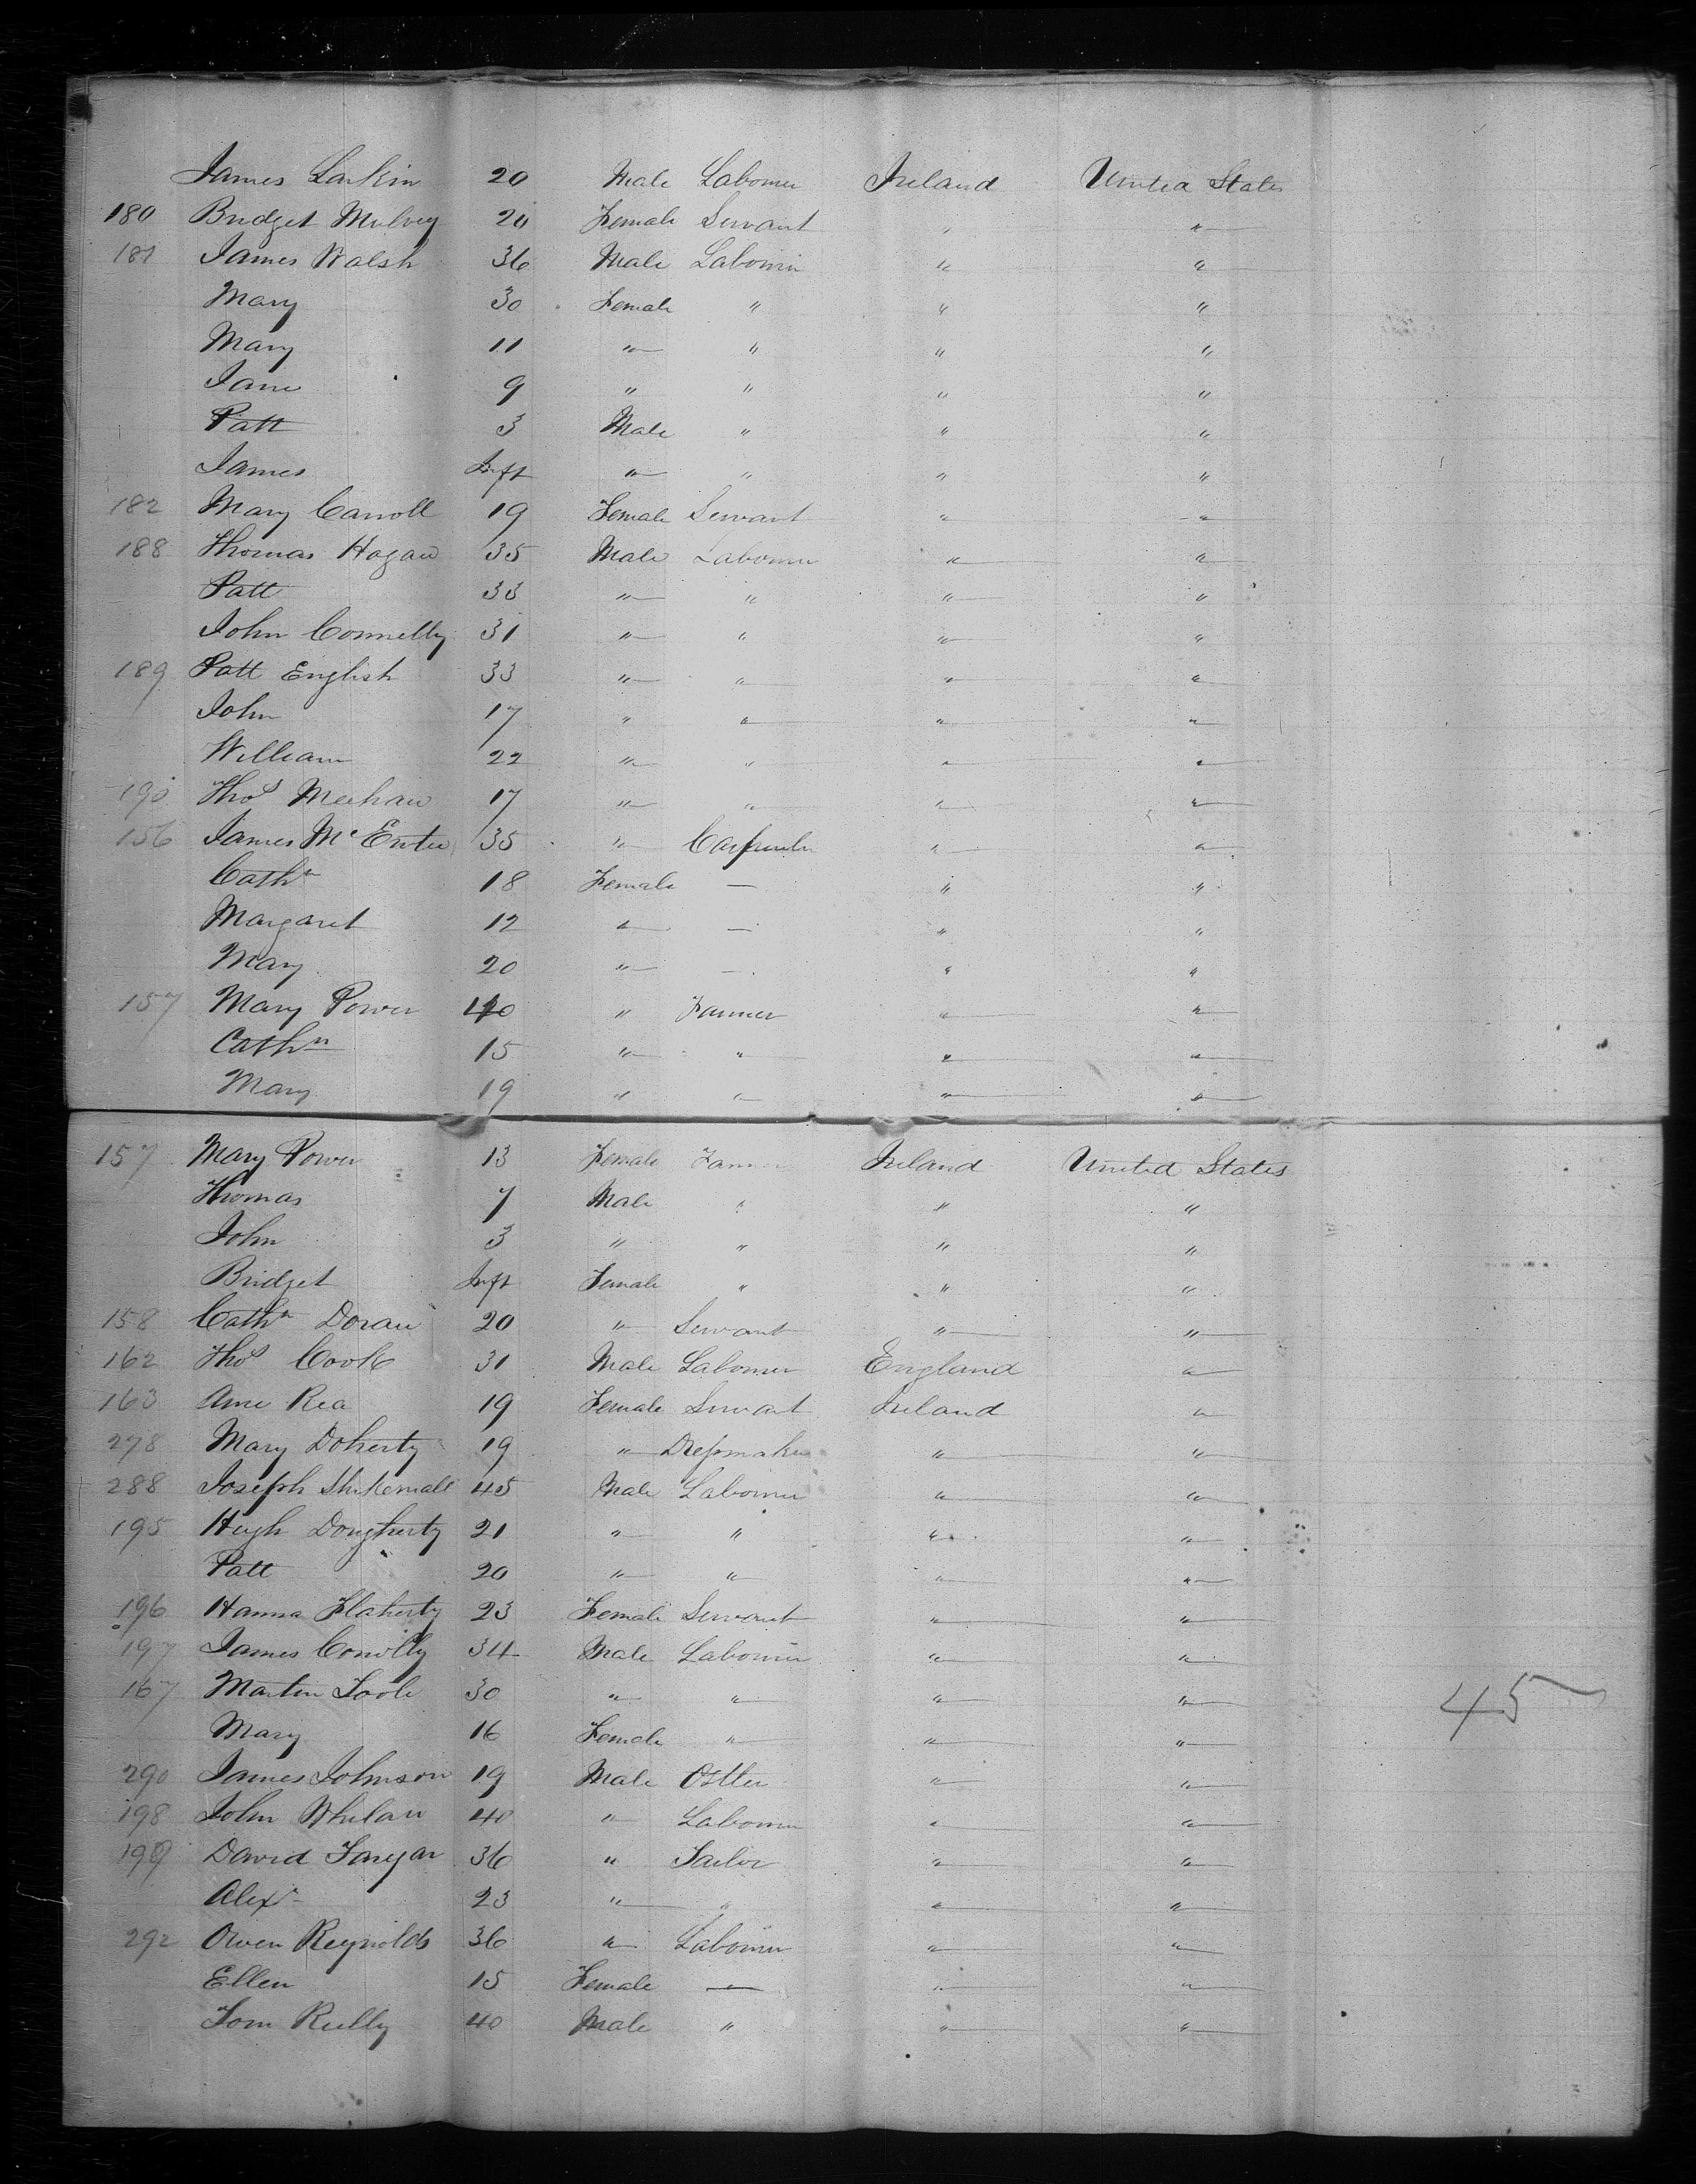 James Larkin 20 Male Labourer Ireland United States
180 Bridget Mulvey 20 Female Servant " "
181 James Walsh 36 Male Labourer " "
Mary 30 Female " " "
Mary 11 " " " "
Jane 9 " " " "
Patt 3 Male " " "
James Inft " " " "
182 Mary Carroll 19 Female Servant " "
188 Thomas Hogan 35 Male Labourer " "
Patt 33 " " " "
John Connelly 31 " " " "
189 Patt English 33 " " " "
John 17 " " " "
William 22 " " " "
190 Thos Meehan 17 " " " "
156 James McEntee 35 " Carpenter " "
Cathn 18 Female — " "
Margaret 12 " — " "
Mary 20 " — " "
157 Mary Power 40 " Farmer " "
Cathn 15 " " " "
Mary 19 " " " "
157 Mary Power 13 Female Farmer Ireland United States
Thomas 7 Male " " "
John 3 " " " "
Bridget Inft Female " " "
158 Cathn Doran 20 " Servant " "
162 Thos Cook 31 Male Labourer England "
163 Anne Rea 19 Female Servant Ireland "
278 Mary Doherty 19 " Dressmaker " "
288 Joseph 45 Male Labourer " "
195 Hugh Dougherty 21 " " " "
Patt 20 " " " "
196 Hanna Flaherty 23 Female Servant " "
197 James Conolly 34 Male Labourer " "
167 Martin Toole 30 " " " "
45
Mary 16 Female " " "
290 James Johnson 19 Male Ostler " "
198 John Whelan 40 " Labourer " "
199 David 36 " Tailor " "
Alexr 23 " " " "
292 Owen Reynolds 36 " Labourer " "
Ellen 15 Female — " "
Tom Reilly 40 Male " " "